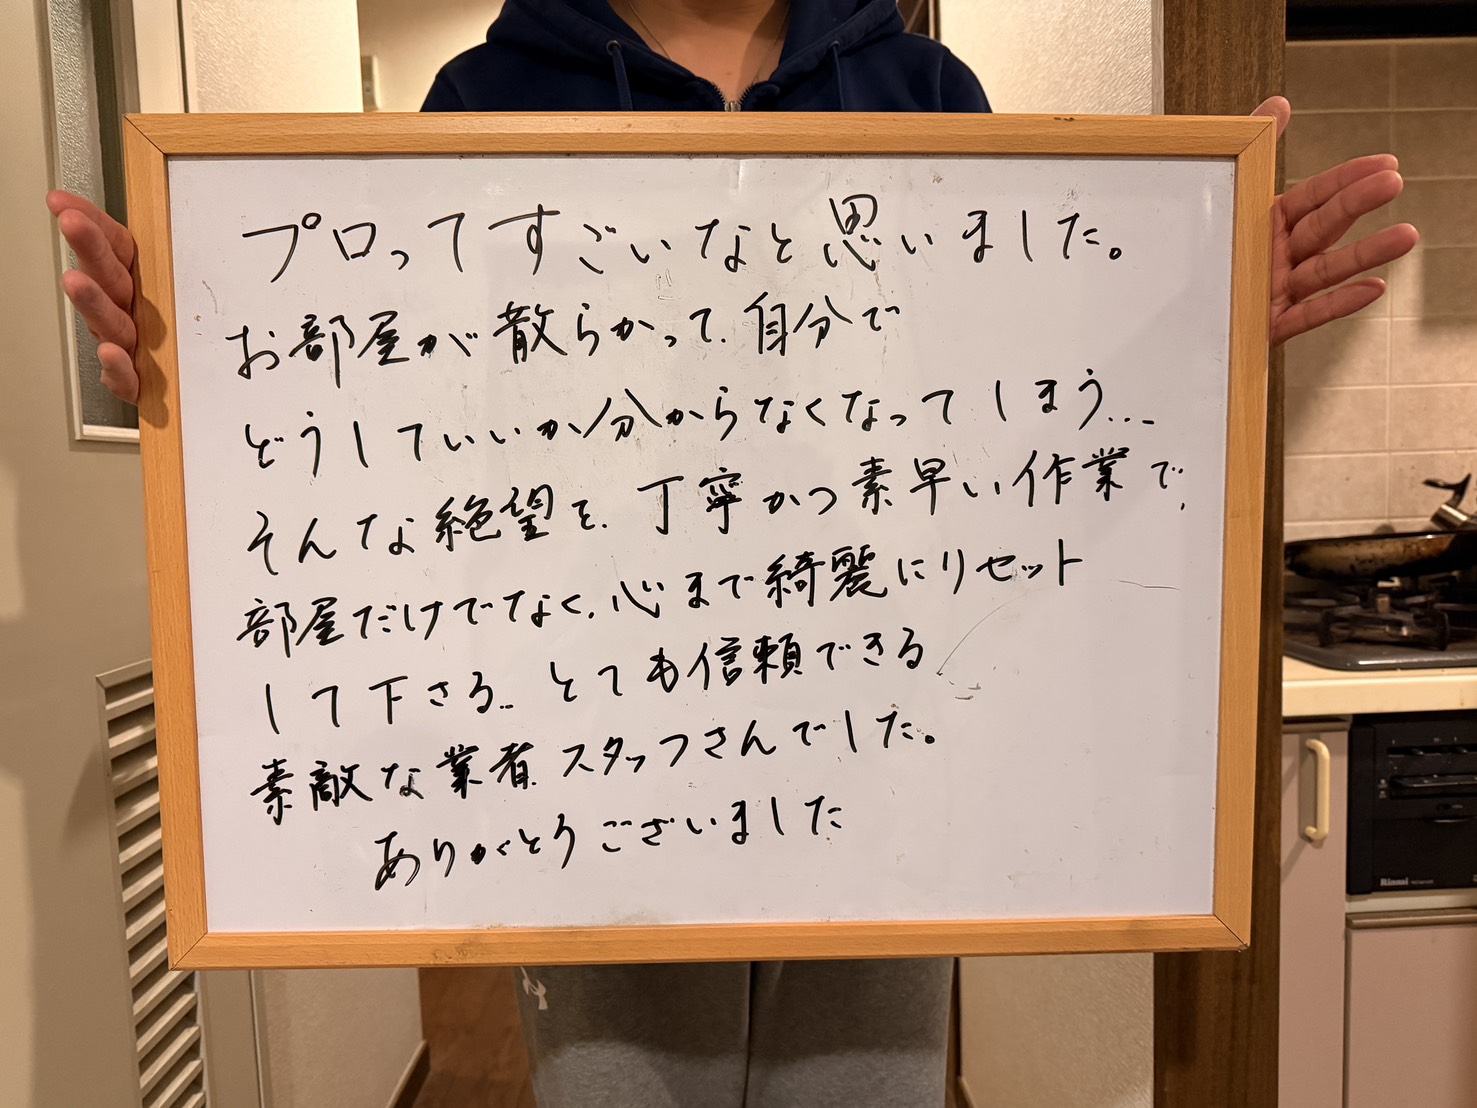 プロってすごいなと思いました。
お部屋が散らかって、自分で
どうしていいか分からなくなってしまう...
そんな絶望を、丁寧かつ素早い作業で、
部屋だけでなく、心まで綺麗にリセット
して下さる.. とても信頼できる
素敵な業者スタッフさんでした。
ありがとうございました
Rinnai